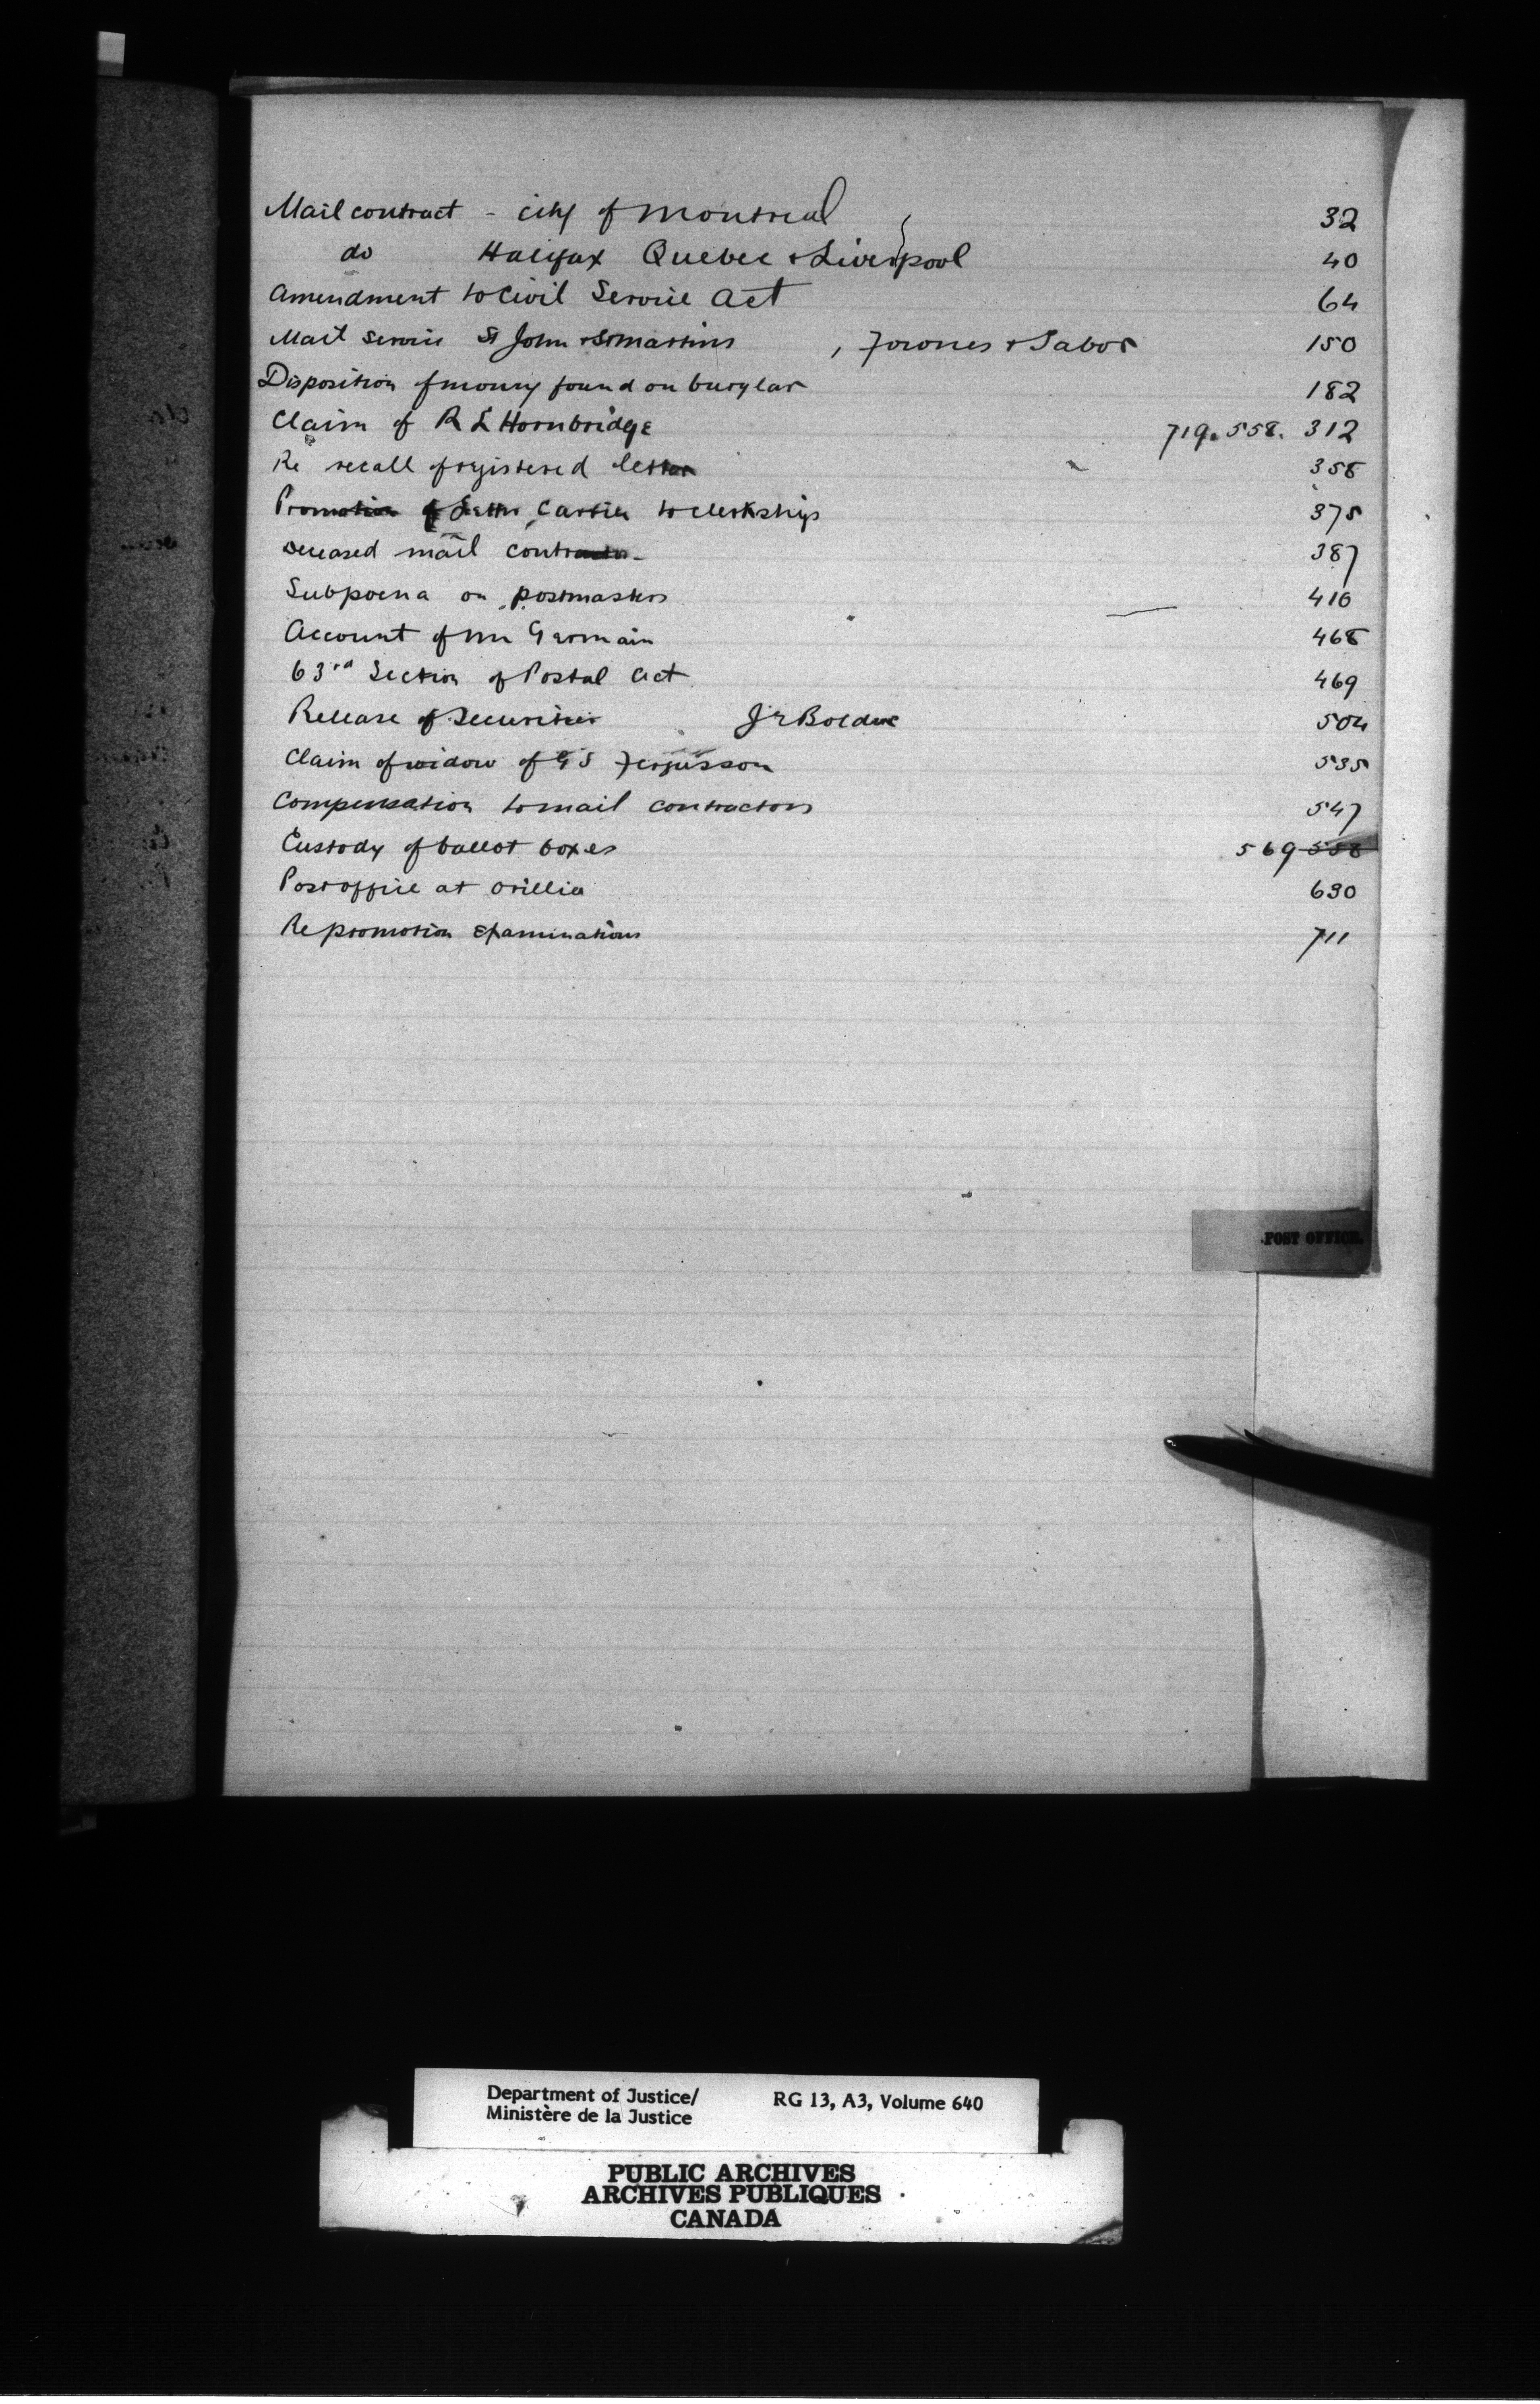 Mail contract - city of Montreal 32
do Halifax Quebec & Liverpool 40
Amendment to Civil Service Act 64
Mail Service St John & St Martins , Fownes & Tabor 150
Disposition of money found on burglar 182
Claim of R L Hornbridge 719. 558. 312
Re recall of registered letter 358
Promotion of Letter Carrier to clerkships 375
Deceased mail contractor 387
Subpoena on postmasters 410
Account of Mr Germain 468
63rd Section of Postal Act 469
Release of Securities J E Bolduc 504
Claim of widow of G S Fergusson 535
Compensation to mail contractors 547
Custody of ballot boxes 569 558
Post office at Orillia 630
Re promotion Examinations 711
POST OFFICE.
Department of Justice/ RG 13, A3, Volume 640
Ministère de la Justice
PUBLIC ARCHIVES
ARCHIVES PUBLIQUES
CANADA